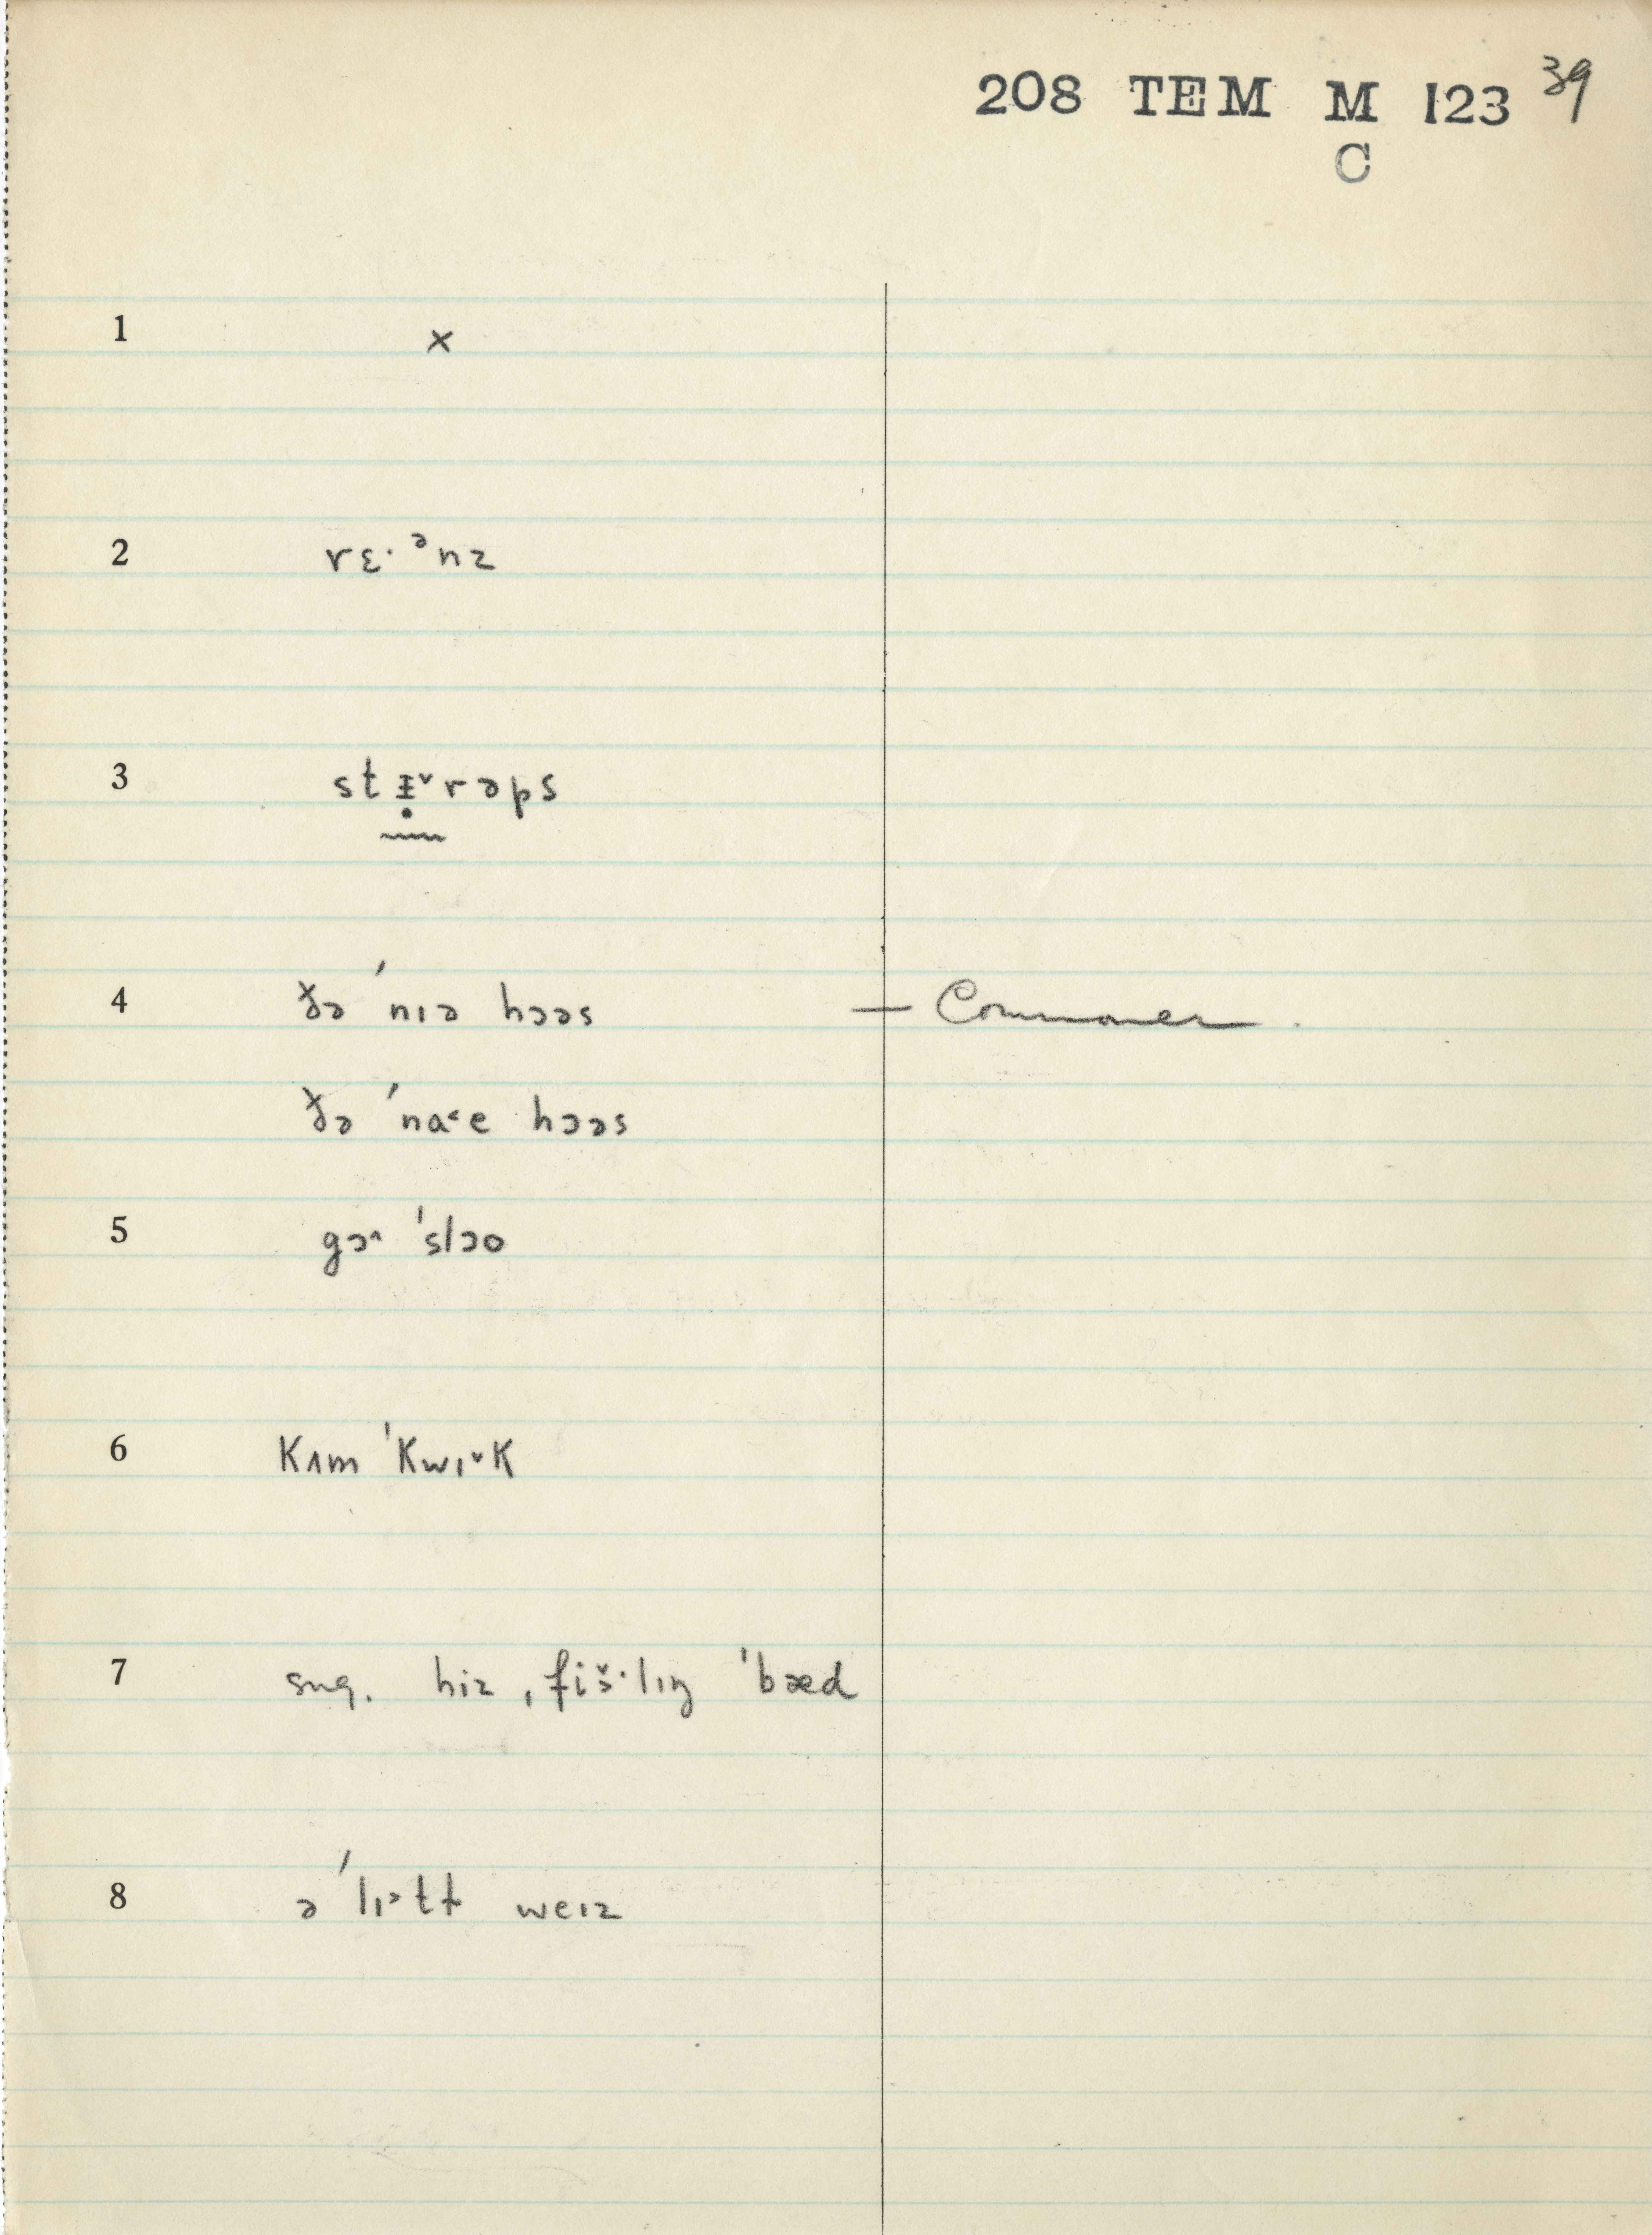 208 TEM M 123 39
C
1 ×
2 rɛ· ᵊnz
3 stɪ̵̣˅rəps
4 ðə ˈnɪə hɔəs — Commoner
ðə ˈna˂e hɔəs
5 gɔ˄ ˈslɔo
6 Kʌm ˈKwɪ˅K
7 sug. hiz ˌfiš·lɪŋ ˈbæd
8 ə ˈlɪ˃tɫ weɪz